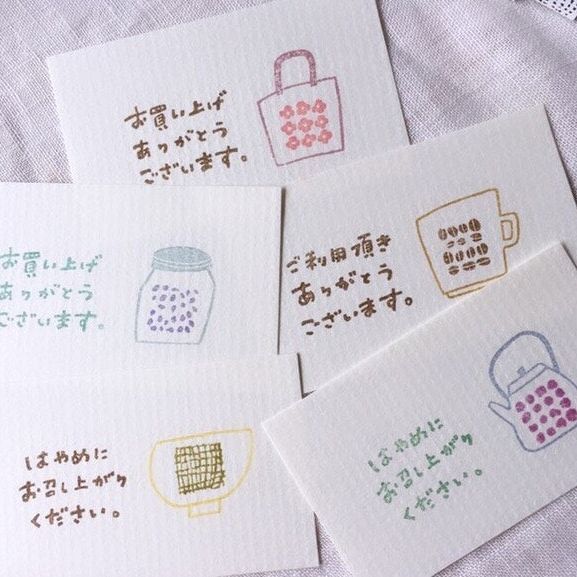 お買い上げ
ありがとう
ございます。
お買い上げ
ありがとう
ございます。
ご利用頂き
ありがとう
ございます。
はやめに
お召し上がり
ください。
はやめに
お召し上がり
ください。